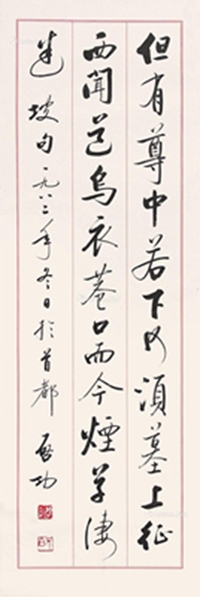 但有尊中若下何須墓上征
西聞道烏衣巷口而今煙草淒
迷 坡句一九八二年冬日於首都 啟功